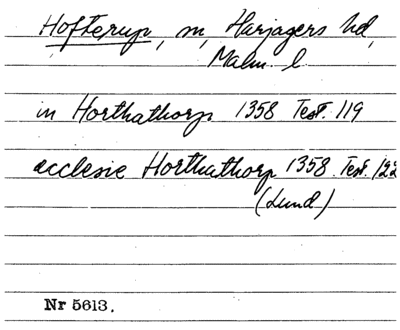 Hofterup, sn, Harjagers hd,
Malm. l
in Horthathorp 1358 Test. 119
acclesie Horthathorp 1358 Test. 122
(Lund)
Nr 5613.